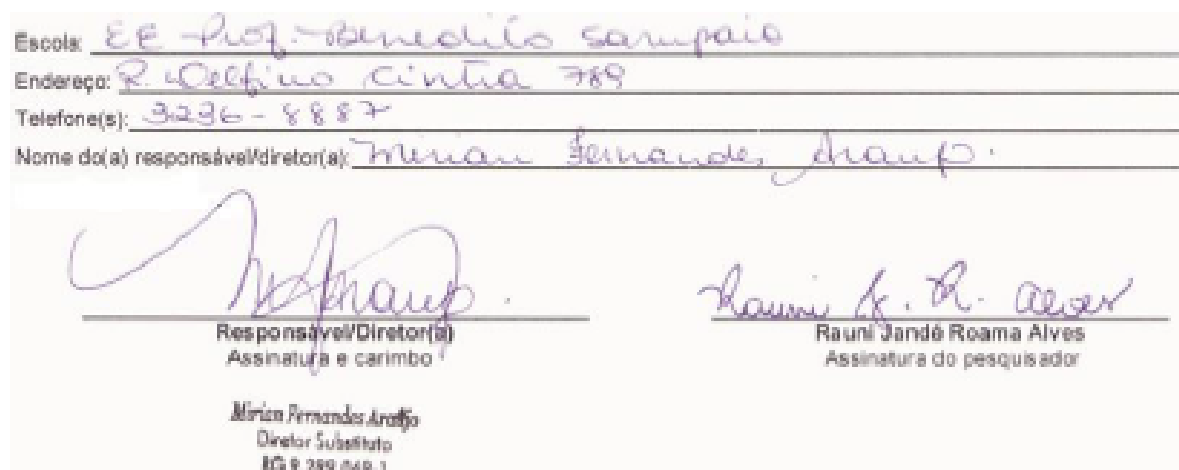 Escola: EE Prof. Benedito Sampaio
Endereço: R. Delfino Cintra 789
Telefone(s): 3236-8887
Nome do(a) responsável/diretor(a): Mirian Fernandes Araujo.
Responsável/Diretor(a)
Assinatura e carimbo
Mirian Fernandes Araújo
Diretor Substituto
RG 9.289.049-1
Rauni J. R. Alves
Rauni Jandé Roama Alves
Assinatura do pesquisador